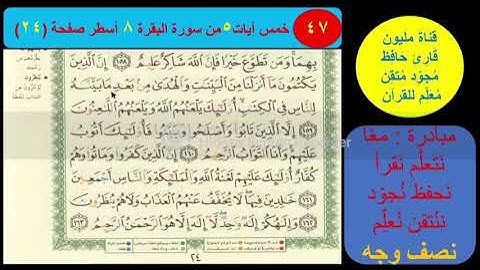 ٤٧
خمس أيات٥من سورة البقرة ٨ أسطر صفحة (٢٤)
قناة مليون
قارئ حافظ
مُجوّد مُتقن
مُعلّم للقرآن
مبادرة : معًا
نتعلّم نقرأ
نحفظ نُجوّد
نُتقن نُعلّم
نصف وجه
بِهِمَا وَمَن تَطَوَّعَ خَيْرًا فَإِنَّ ٱللَّهَ شَاكِرٌ عَلِيمٌ ١٥٨ إِنَّ ٱلَّذِينَ
يَكْتُمُونَ مَآ أَنزَلْنَا مِنَ ٱلْبَيِّنَـٰتِ وَٱلْهُدَىٰ مِنۢ بَعْدِ مَا بَيَّنَّـٰهُ
لِلنَّاسِ فِى ٱلْكِتَـٰبِ أُو۟لَـٰٓئِكَ يَلْعَنُهُمُ ٱللَّهُ وَيَلْعَنُهُمُ ٱللَّـٰعِنُونَ
١٥٩ إِلَّا ٱلَّذِينَ تَابُوا۟ وَأَصْلَحُوا۟ وَبَيَّنُوا۟ فَأُو۟لَـٰٓئِكَ أَتُوبُ
عَلَيْهِمْ وَأَنَا ٱلتَّوَّابُ ٱلرَّحِيمُ ١٦٠ إِنَّ ٱلَّذِينَ كَفَرُوا۟ وَمَاتُوا۟ وَهُمْ
كُفَّارٌ أُو۟لَـٰٓئِكَ عَلَيْهِمْ لَعْنَةُ ٱللَّهِ وَٱلْمَلَـٰٓئِكَةِ وَٱلنَّاسِ أَجْمَعِينَ
١٦١ خَـٰلِدِينَ فِيهَا لَا يُخَفَّفُ عَنْهُمُ ٱلْعَذَابُ وَلَا هُمْ يُنظَرُونَ
١٦٢ وَإِلَـٰهُكُمْ إِلَـٰهٌ وَٰحِدٌ لَّآ إِلَـٰهَ إِلَّا هُوَ ٱلرَّحْمَـٰنُ ٱلرَّحِيمُ ١٦٣
٢٤